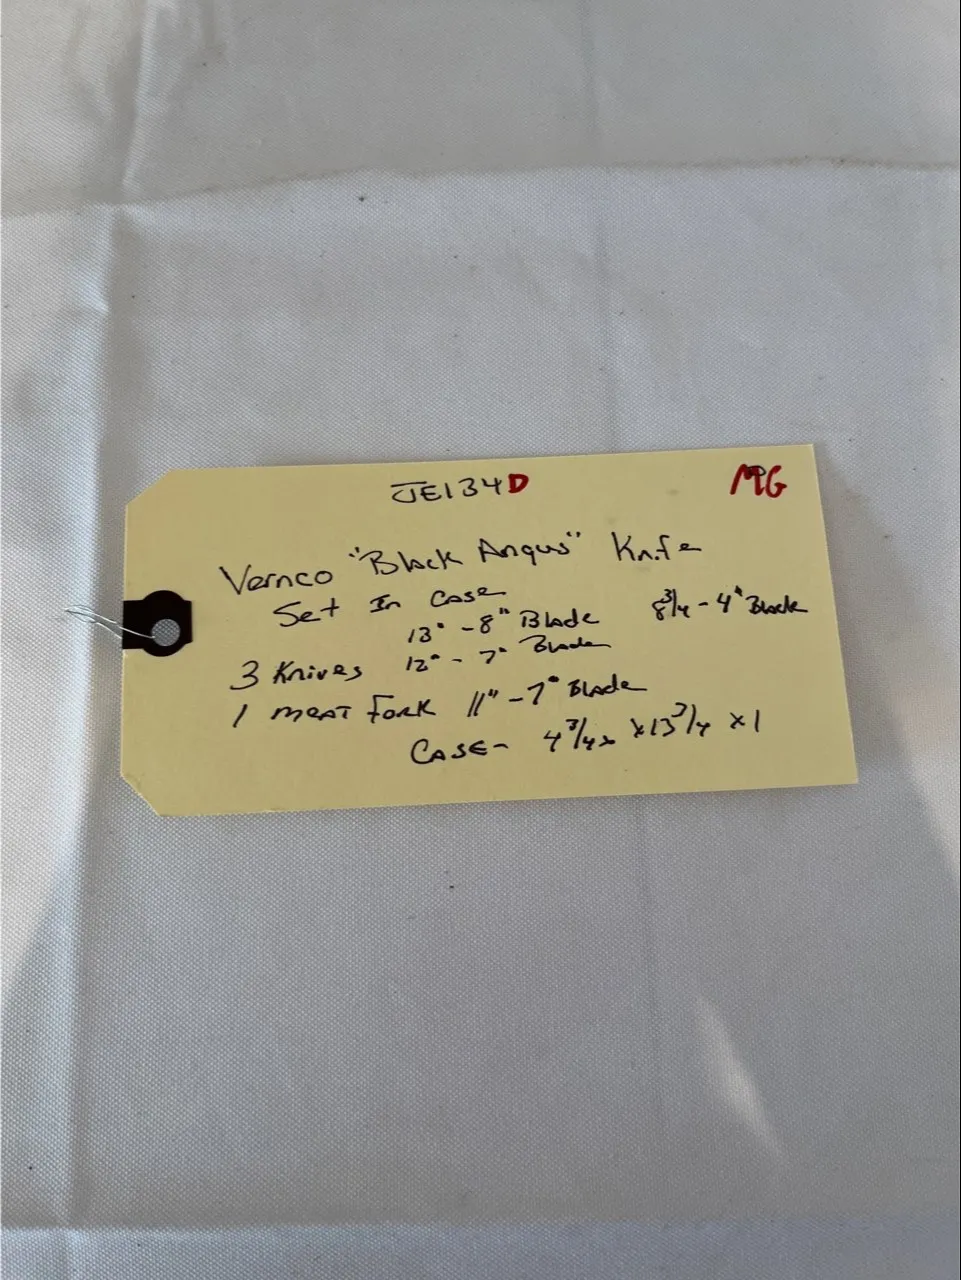 JE134D MG
Vernco "Black Angus" Knife
Set In Case
13" - 8" Blade 8 3/4 - 4" Blade
3 Knives 12" - 7" Blade
1 meat Fork 11" - 7" Blade
CASE - 4 3/4 x 13 3/4 x 1